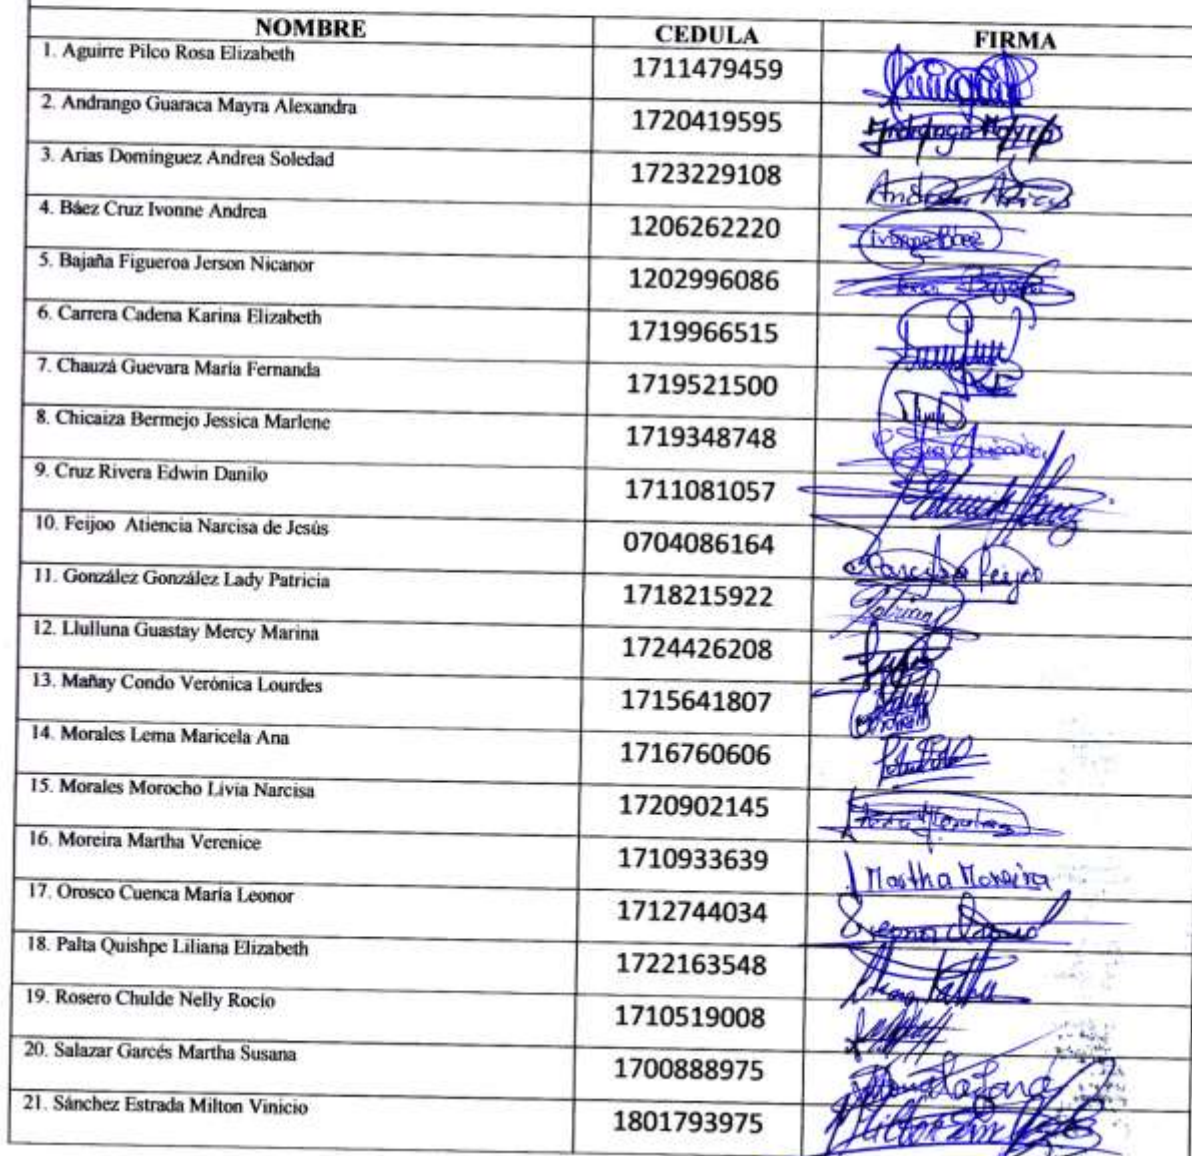 NOMBRE CEDULA FIRMA
1. Aguirre Pilco Rosa Elizabeth 1711479459
2. Andrango Guaraca Mayra Alexandra 1720419595 Andrango Mayra
3. Arias Domínguez Andrea Soledad 1723229108 Andrea Arias
4. Báez Cruz Ivonne Andrea 1206262220 Ivonne Báez
5. Bajaña Figueroa Jerson Nicanor 1202996086
6. Carrera Cadena Karina Elizabeth 1719966515
7. Chauzá Guevara María Fernanda 1719521500
8. Chicaiza Bermejo Jessica Marlene 1719348748
9. Cruz Rivera Edwin Danilo 1711081057
10. Feijoo Atiencia Narcisa de Jesús 0704086164 Narcisa Feijoo
11. González González Lady Patricia 1718215922
12. Llulluna Guastay Mercy Marina 1724426208
13. Mañay Condo Verónica Lourdes 1715641807
14. Morales Lema Maricela Ana 1716760606
15. Morales Morocho Livia Narcisa 1720902145
16. Moreira Martha Verenice 1710933639 Martha Moreira
17. Orosco Cuenca María Leonor 1712744034
18. Palta Quishpe Liliana Elizabeth 1722163548
19. Rosero Chulde Nelly Rocío 1710519008
20. Salazar Garcés Martha Susana 1700888975
21. Sánchez Estrada Milton Vinicio 1801793975